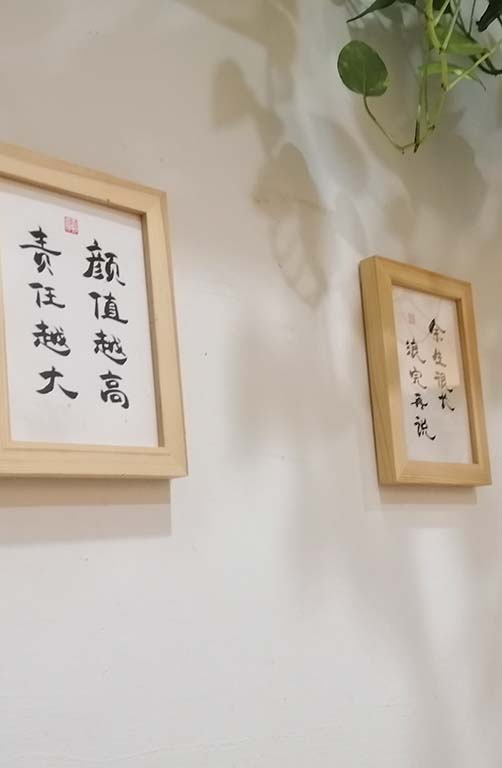 颜值越高
责任越大
余生很长
浪完再说